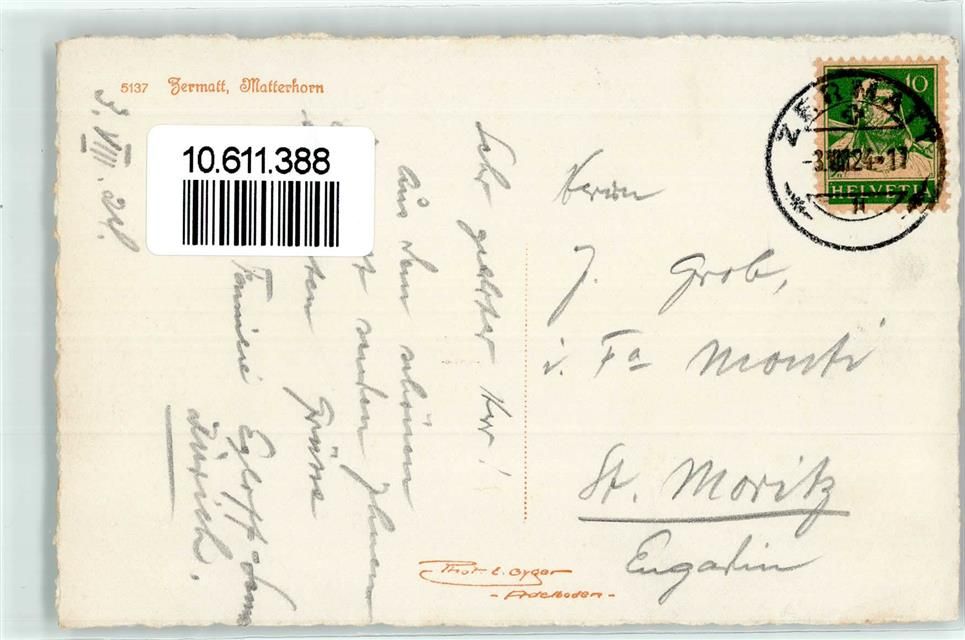 5137 Zermatt, Matterhorn
3. VIII. 24.
10.611.388
Sehr geehrter Herr!
Aus dem schönen
senden Ihnen
Grüsse
Familie Egloff
Zürich.
10
HELVETIA
ZERMATT
-3.VIII.24-17
Herrn
J. Grob,
i. Fa Monti
St. Moritz
Engadin
Phot. E. Gyger
- Adelboden -